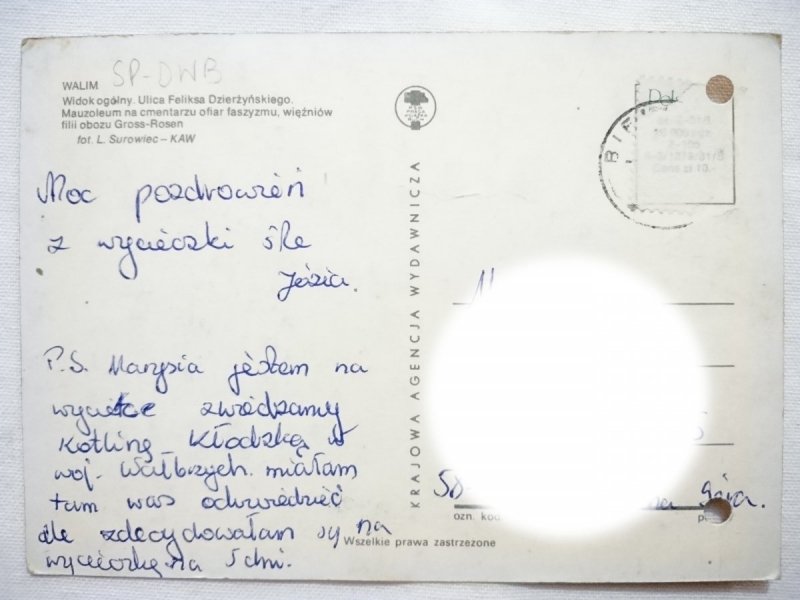 WALIM SP-DWB
Widok ogólny. Ulica Feliksa Dzierżyńskiego.
Mauzoleum na cmentarzu ofiar faszyzmu, więźniów
filii obozu Gross-Rosen
fot. L. Surowiec – KAW
Moc pozdrowień
z wycieczki śle
Józia.
P.S. Marysia jestem na
zwiedzamy
Kotlinę Kłodzką w
woj. Wałbrzych. miałam
tam was odwiedzieć
ale zdecydowałam się na
wycieczkę na 5 dni.
KRAJOWA AGENCJA WYDAWNICZA
Wszelkie prawa zastrzeżone
BIE
58-
Góra.
ozn. kod